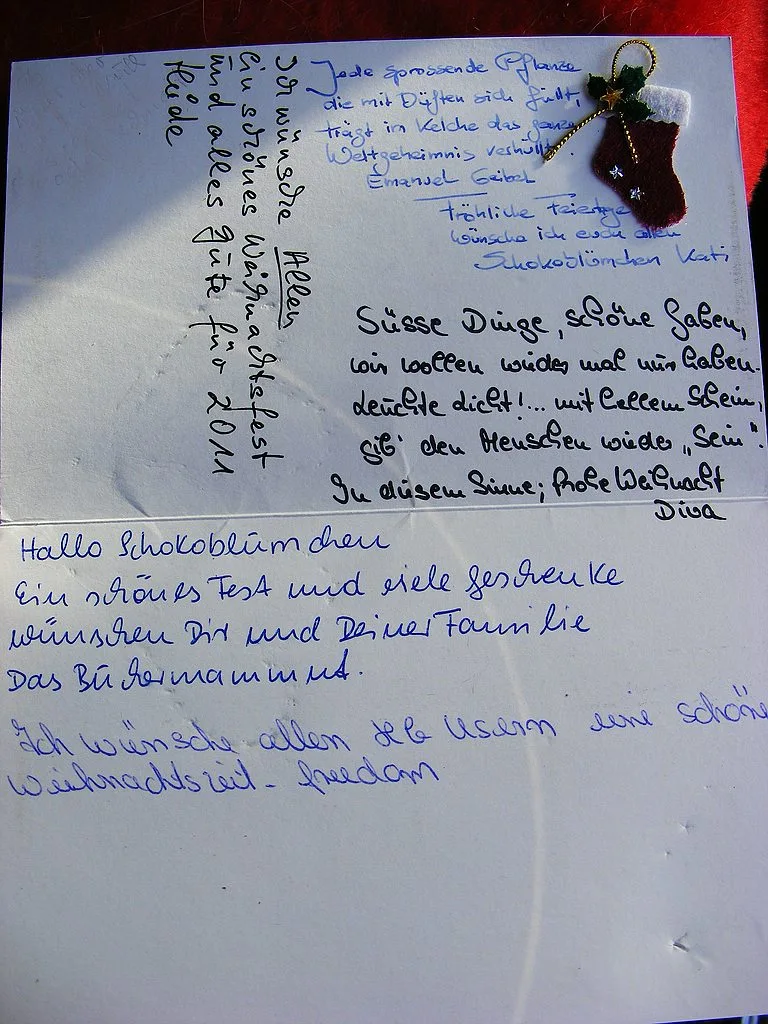 Ich wünsche Allen
Ein schönes Weihnachtsfest
und alles gute für 2011
Jede sprossende Pflanze
die mit Düften sich füllt,
trägt im Kelche das ganze
Weltgeheimnis verhüllt.
Emanuel Geibel
Fröhliche Feiertage
wünsche ich euch allen
Schokoblümchen Kati
Süsse Dinge, schöne Gaben,
wir wollen wieder mal nur haben.
Leuchte dicht!... mit hellem Schein,
gib' den Menschen wieder „Sein".
In diesem Sinne; frohe Weihnacht
Diva
Hallo Schokoblümchen
Ein schönes Fest und viele Geschenke
wünschen Dir und Deiner Familie
Das Büchermammut.
Ich wünsche allen Usern eine schöne
Weihnachtszeit - freedom